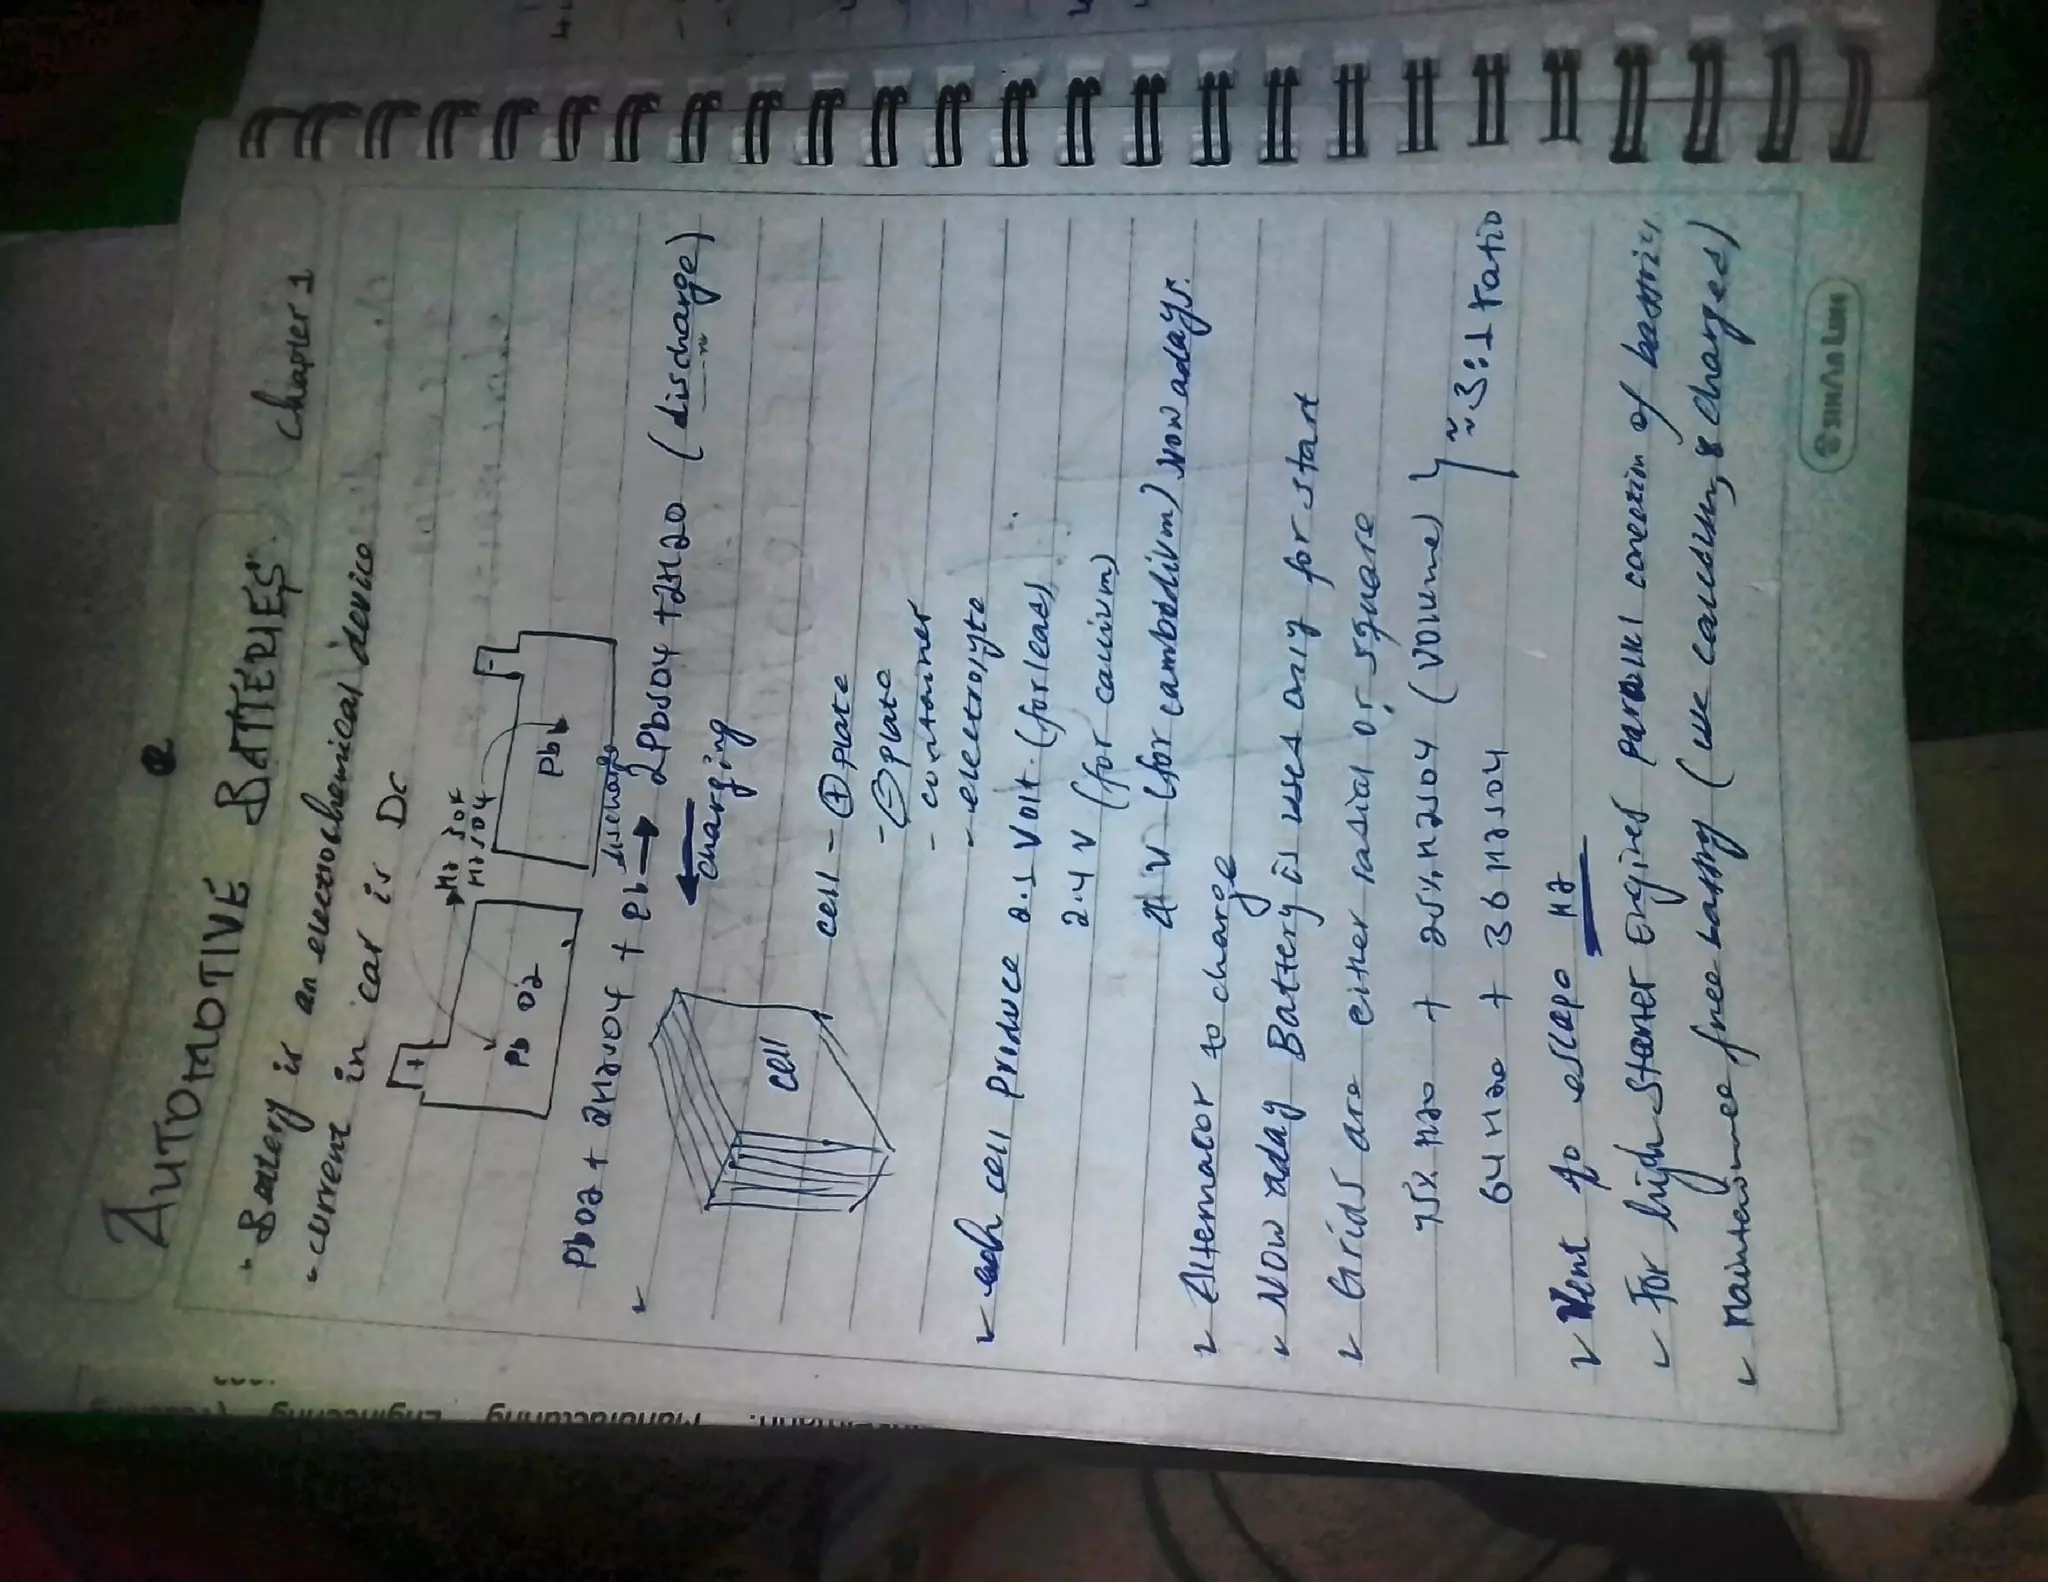 AUTOMOTIVE BATTERIES
chapter 1
- Battery is an electrochemical device
- current in car is Dc
+
-
H2SO4
Pb O2
Pb
discharge
PbO2 + 2H2SO4 + Pb → 2PbSO4 + 2H2O (discharge)
← charging
cell
cell - ⊕ plate
- ⊖ plate
- container
- electrolyte
each cell produce 2.1 Volt. (for lead)
2.4 V (for calcium)
V (for cambodium) Now adays.
Alternator to charge
Now aday Battery is used only for start
Grids are either radial or square
75% H2O + 25% H2SO4 (volume)
64 H2O + 36 H2SO4
≈ 3:1 ratio
Vent to escape H2
For high starter Engines parallel of
free (use calcium, & charges)
SINAR LINE
Manufacturing Engineering